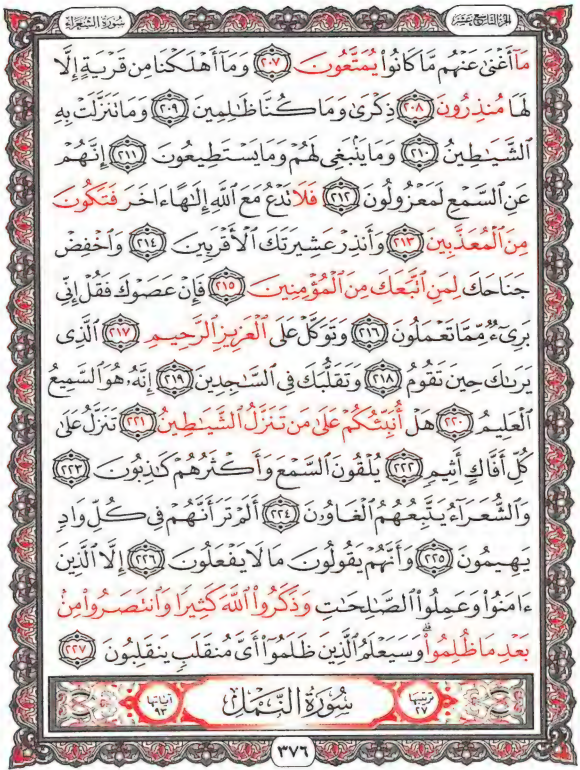 الجزء التاسع عشر
سورة الشعراء
مَآ أَغْنَىٰ عَنْهُم مَّا كَانُوا۟ يُمَتَّعُونَ ٢٠٧ وَمَآ أَهْلَكْنَا مِن قَرْيَةٍ إِلَّا
لَهَا مُنذِرُونَ ٢٠٨ ذِكْرَىٰ وَمَا كُنَّا ظَٰلِمِينَ ٢٠٩ وَمَا تَنَزَّلَتْ بِهِ
ٱلشَّيَٰطِينُ ٢١٠ وَمَا يَنۢبَغِى لَهُمْ وَمَا يَسْتَطِيعُونَ ٢١١ إِنَّهُمْ
عَنِ ٱلسَّمْعِ لَمَعْزُولُونَ ٢١٢ فَلَا تَدْعُ مَعَ ٱللَّهِ إِلَٰهًا ءَاخَرَ فَتَكُونَ
مِنَ ٱلْمُعَذَّبِينَ ٢١٣ وَأَنذِرْ عَشِيرَتَكَ ٱلْأَقْرَبِينَ ٢١٤ وَٱخْفِضْ
جَنَاحَكَ لِمَنِ ٱتَّبَعَكَ مِنَ ٱلْمُؤْمِنِينَ ٢١٥ فَإِنْ عَصَوْكَ فَقُلْ إِنِّى
بَرِىٓءٌ مِّمَّا تَعْمَلُونَ ٢١٦ وَتَوَكَّلْ عَلَى ٱلْعَزِيزِ ٱلرَّحِيمِ ٢١٧ ٱلَّذِى
يَرَىٰكَ حِينَ تَقُومُ ٢١٨ وَتَقَلُّبَكَ فِى ٱلسَّٰجِدِينَ ٢١٩ إِنَّهُۥ هُوَ ٱلسَّمِيعُ
ٱلْعَلِيمُ ٢٢٠ هَلْ أُنَبِّئُكُمْ عَلَىٰ مَن تَنَزَّلُ ٱلشَّيَٰطِينُ ٢٢١ تَنَزَّلُ عَلَىٰ
كُلِّ أَفَّاكٍ أَثِيمٍ ٢٢٢ يُلْقُونَ ٱلسَّمْعَ وَأَكْثَرُهُمْ كَٰذِبُونَ ٢٢٣
وَٱلشُّعَرَآءُ يَتَّبِعُهُمُ ٱلْغَاوُۥنَ ٢٢٤ أَلَمْ تَرَ أَنَّهُمْ فِى كُلِّ وَادٍ
يَهِيمُونَ ٢٢٥ وَأَنَّهُمْ يَقُولُونَ مَا لَا يَفْعَلُونَ ٢٢٦ إِلَّا ٱلَّذِينَ
ءَامَنُوا۟ وَعَمِلُوا۟ ٱلصَّٰلِحَٰتِ وَذَكَرُوا۟ ٱللَّهَ كَثِيرًا وَٱنتَصَرُوا۟ مِنۢ
بَعْدِ مَا ظُلِمُوا۟ ۗ وَسَيَعْلَمُ ٱلَّذِينَ ظَلَمُوٓا۟ أَىَّ مُنقَلَبٍ يَنقَلِبُونَ ٢٢٧
ترتيبها ٢٧ سورة النمل آياتها ٩٣
٣٧٦